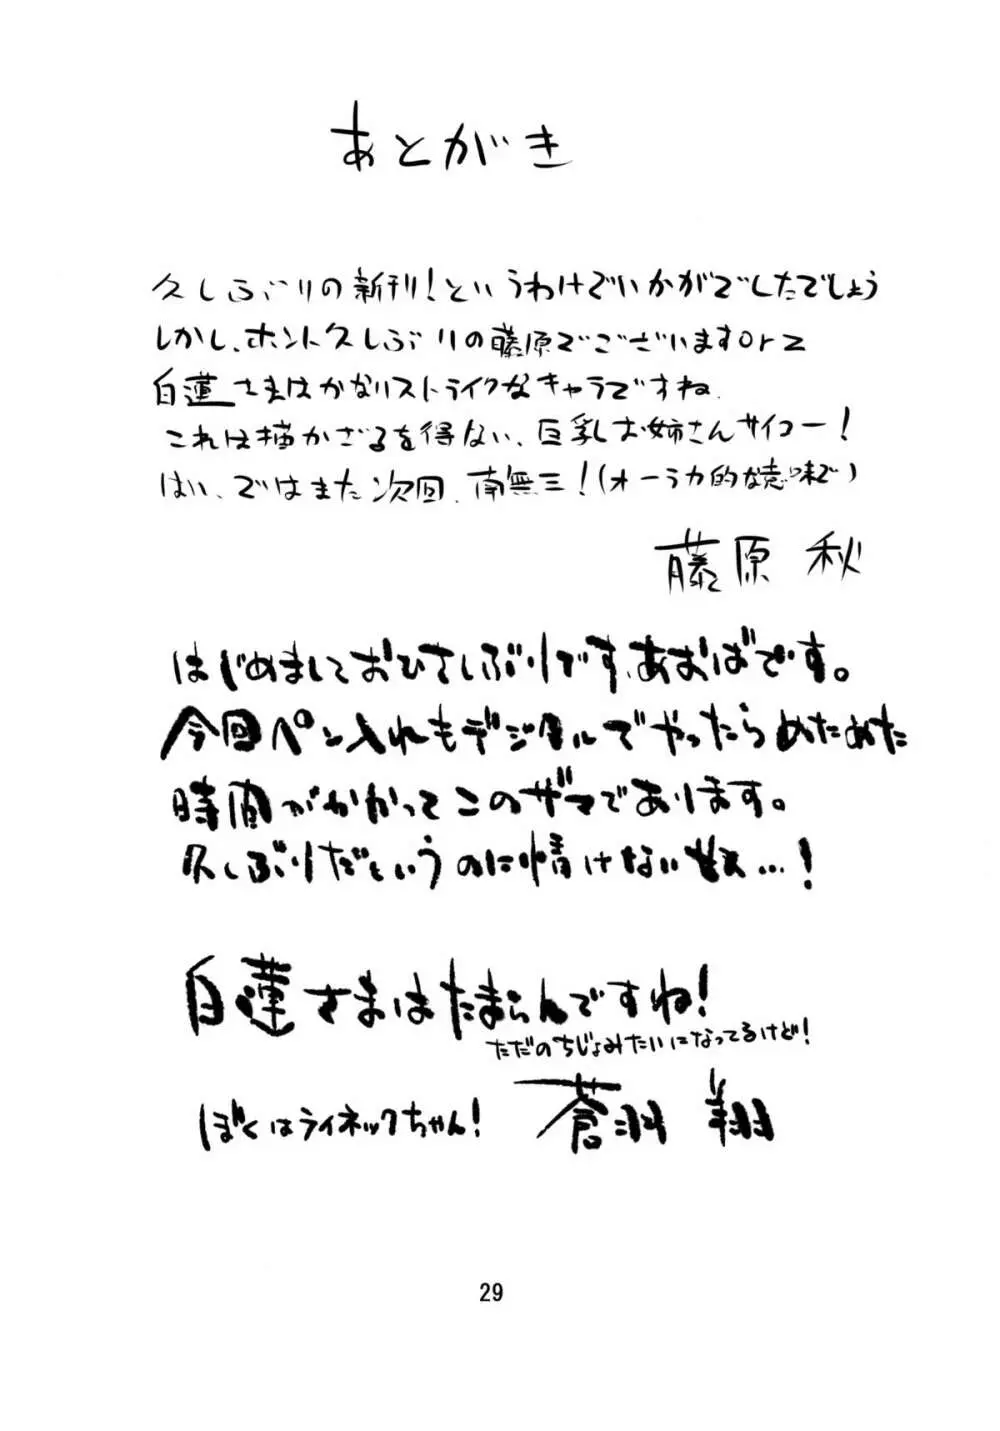 あとがき
久しぶりの新刊!というわけでいかがでしたでしょう
しかし、ホント久しぶりの藤原でございますorz
白蓮さまはかなりストライクなキャラですね.
これは描かざるを得ない、巨乳お姉さんサイコー!
はい、ではまた次回、南無三!(オーラ力的な意味で)
藤原 秋
はじめましておひさしぶりです、あおばです。
今回ペン入れもデジタルでやったらめためた
時間がかかってこのザマであります。
久しぶりだというのに情けない…!
白蓮さまはたまらんですね!
ただのちじょみたいになってるけど!
ぼくはライネックちゃん!
蒼羽 翔
29